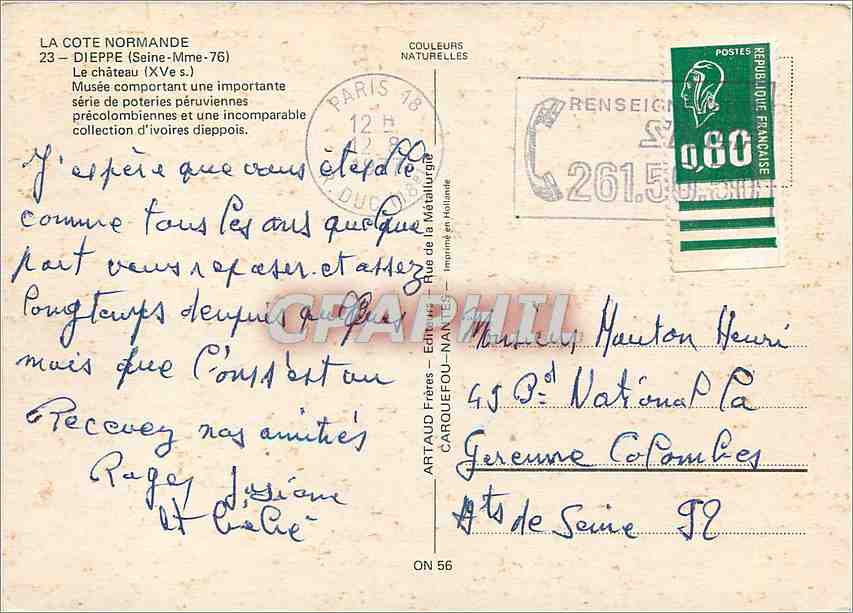 LA COTE NORMANDE
23 — DIEPPE (Seine-Mme-76)
Le château (XVe s.)
Musée comportant une importante
série de poteries péruviennes
précolombiennes et une incomparable
collection d'ivoires dieppois.
COULEURS
NATURELLES
PARIS 18
12 H
12 8
R. DUC (18e)
RENSEIGN
261.50.50
POSTES
REPUBLIQUE FRANÇAISE
0,80
J'espère que vous êtes allé
comme tous les ans quelque
part vous reposer. et assez
longtemps depuis quelques
mois que l'on s'est vu
Recevez nos amitiés
Roger Josiane
et
ARTAUD Frères — Editeurs — Rue de la Métallurgie
CARQUEFOU-NANTES — Imprimé en Hollande
CPAPHIL
Monsieur Mouton Henri
45 Bd National La
Garenne Colombes
Hts de Seine 92
ON 56